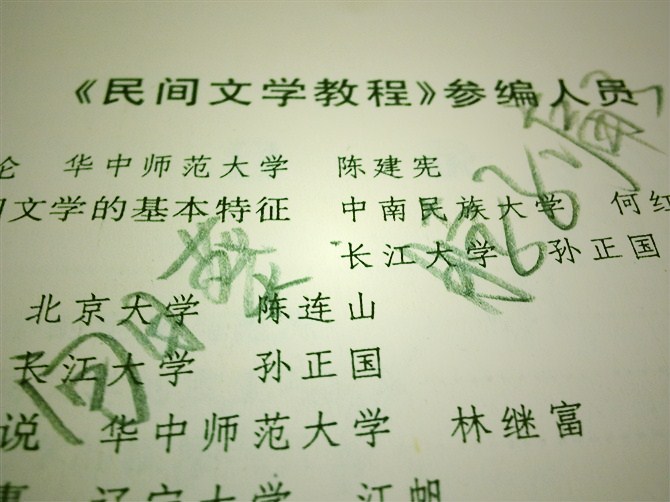 《民间文学教程》参编人员
论 华中师范大学 陈建宪
间文学的基本特征 中南民族大学 何红
长江大学 孙正国
北京大学 陈连山
长江大学 孙正国
说 华中师范大学 林继富
事 辽宁大学 江帆